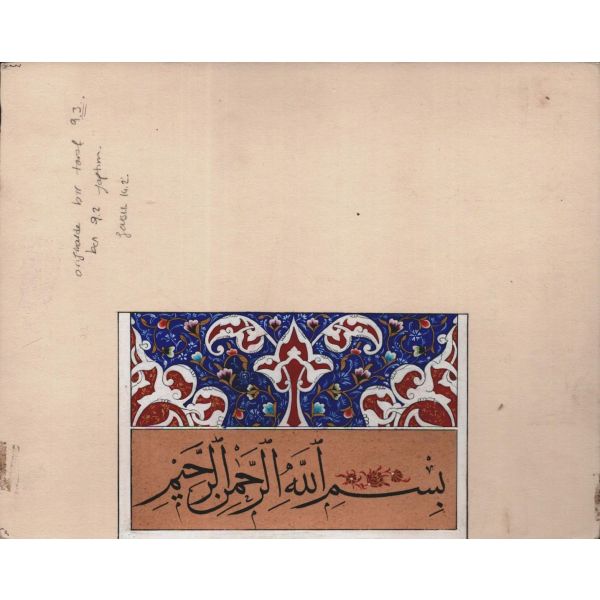 orijinalde bir taraf 9.3.
ben 9.2 yaptım.
14.2
بِسْمِ اللَّهِ الرَّحْمٰنِ الرَّحِيْمِ